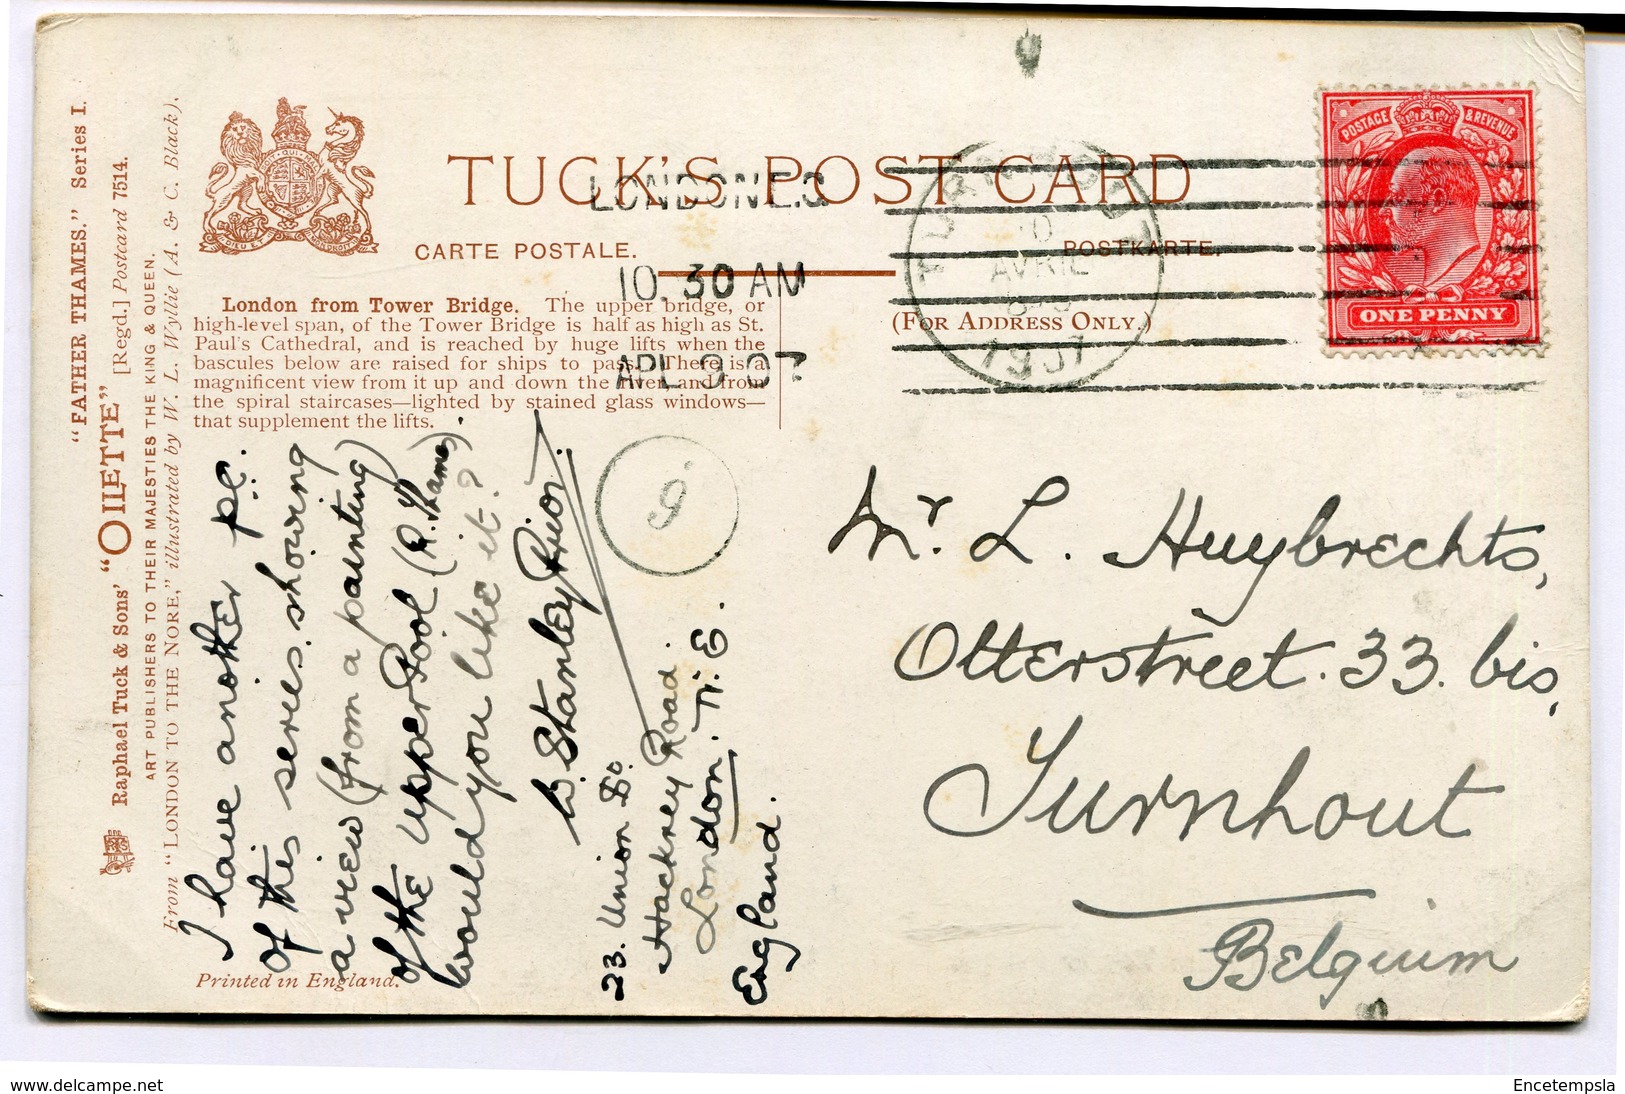 "FATHER THAMES." Series I.
Raphael Tuck & Sons' "OILETTE" [Regd.] Postcard 7514.
ART PUBLISHERS TO THEIR MAJESTIES THE KING & QUEEN.
From "LONDON TO THE NORE," illustrated by W. L. Wyllie (A. & C. Black).
TUCK'S POST CARD
CARTE POSTALE.
POSTKARTE.
(FOR ADDRESS ONLY.)
LONDON N.E.
10.30 AM
APL 9 07
TURNHOUT
10
AVRIL
1907
POSTAGE & REVENUE
ONE PENNY
London from Tower Bridge. The upper bridge, or
high-level span, of the Tower Bridge is half as high as St.
Paul's Cathedral, and is reached by huge lifts when the
bascules below are raised for ships to pass. There is a
magnificent view from it up and down the river and from
the spiral staircases—lighted by stained glass windows—
that supplement the lifts.
I have another p.c.
of this series showing
a view (from a painting)
of the upper Pool (R. Thames).
Would you like it?
W. Stanley Prior.
23. Union Bo.
Hackney Road.
London. N. E.
England.
Mr. L. Huybrechts,
Otterstreet. 33. bis,
Turnhout
Belgium
Printed in England.
delcampe.net
Encetempsla